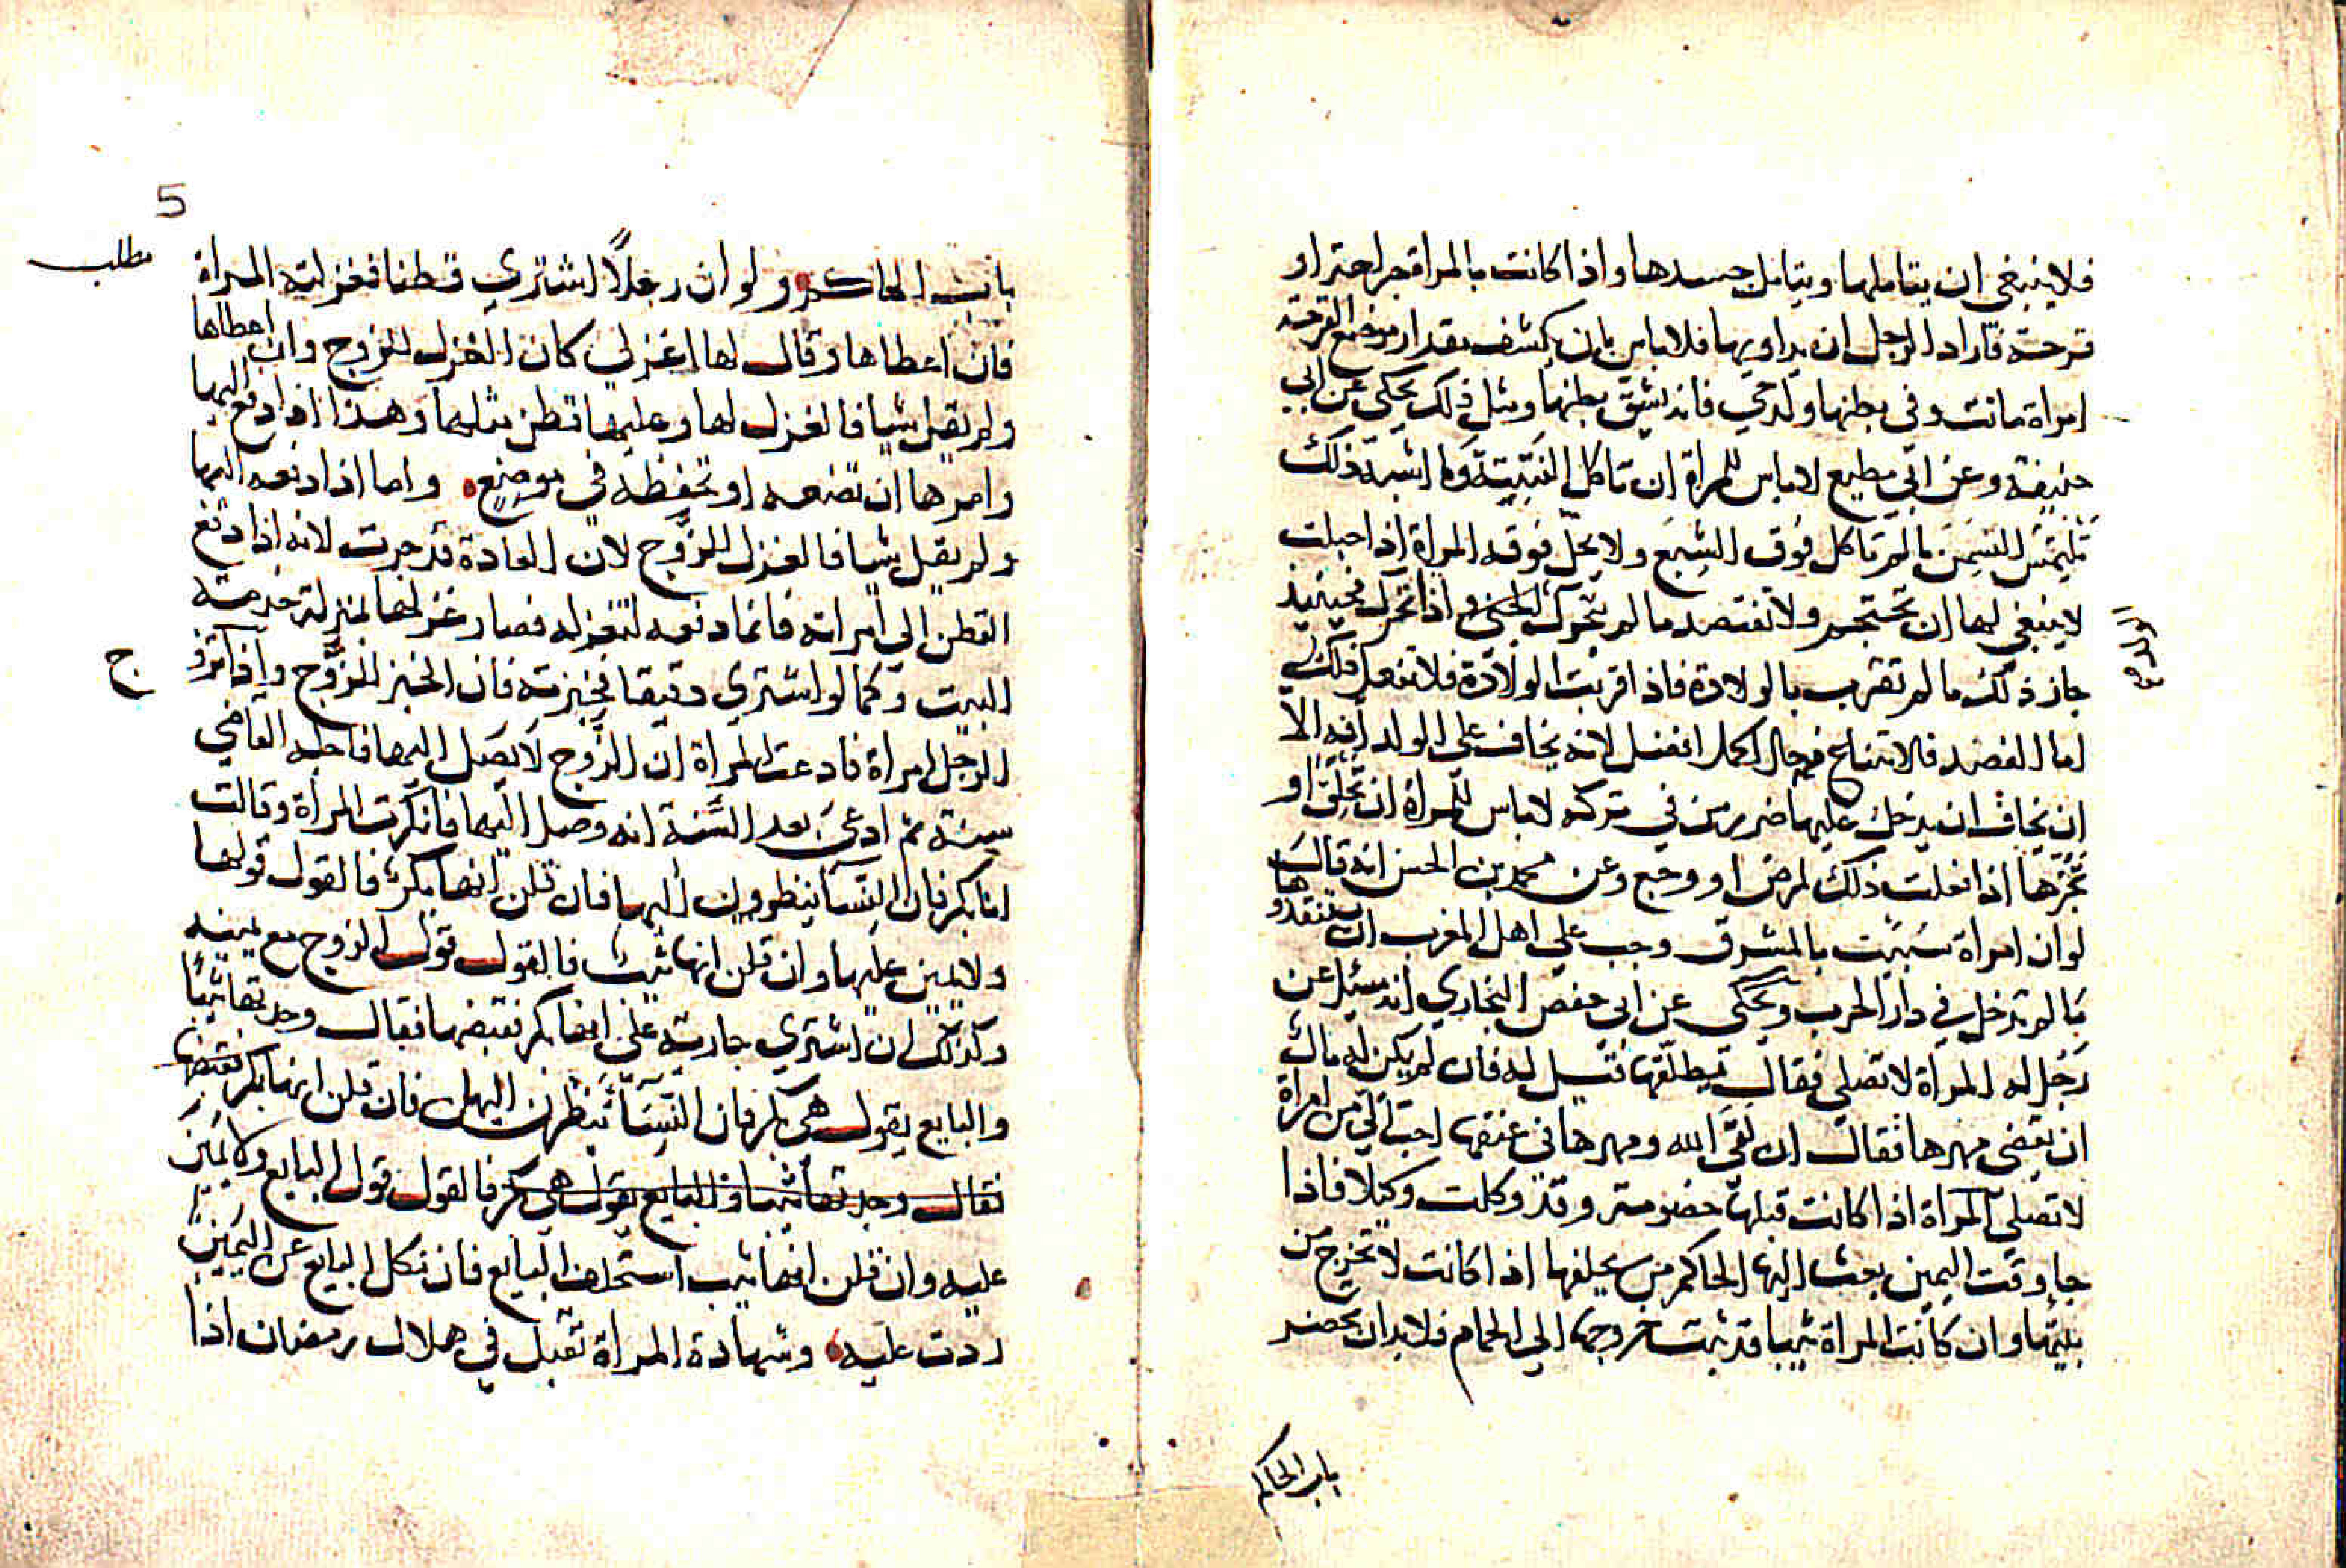 فلا ينبغى ان يتاملها ويتامل جسدها واذا كانت بالمراة جراحة او
قرحة فاراد الرجل ان يداويها فلا باس بان يكشف مقدار موضع القرحة
امراة ماتت وفى بطنها ولد حي فانه يشق بطنها ومثل ذلك يحكى عن ابي
حنيفة وعن ابي مطيع لا باس للمراة ان تاكل الفتيتة وما اشبه ذلك
تلتمس السمن ما لم تاكل فوق الشبع ولا يحل فوقه المراة اذا حبلت
لا ينبغي لها ان تحتجم ولا تفتصد ما لم يتحرك الجنين واذا تحرك فحينيذ
جاز ذلك ما لم تقرب بالولادة فاذا قربت الولادة فلا تفعل ذلك
اما الفصد فالامتناع في حال الحمل افضل لانه يخاف على الولد منه الا
ان يخاف ان يدخل عليها ضرر بين في تركه لا باس للمراة ان تحلق او
تجزها اذا فعلت ذلك لمرض او وجع وعن محمد بن الحسن انه قال
لو ان امراة سبيت بالمشرق وجب على اهل المغرب ان يستنقذوها
ما لم تدخل في دار الحرب ويحكي عن ابي حفص البخاري انه سئل عن
رجل له المراة لا تصلي فقال يطلقها فقيل له فان لم يكن له مال
ان يقضى مهرها فقال ان لقي الله ومهرها فى عنقه احب الي من امراة
لا تصلي المراة اذا كانت قبلها خصومة وقد وكلت وكيلا فاذا
جا وقت اليمين بعث اليها الحاكم من يحلفها اذا كانت لا تخرج من
بيتها وان كانت المراة ثيبا قد ثبت خروجها الى الحمام فلا بد ان تحضر
باب الحاكم
5
مطلب
باب الحاكم ولو ان رجلاً اشتري قطنا فغزلته المراة
فان اعطاها وقال لها اغزلي كان الغزل للزوج وان اعطاها
ولم يقل شيا فالغزل لها وعليها قطن مثلها وهذا اذا دفع اليها
وامرها ان تضعه او تحفظه في موضع واما اذا دفعه اليها
ولم يقل شيا فالغزل للزوج لان العادة قد جرت لانه اذا دفع
القطن الى امراته فانما دفعه لتغزله فصار غزلها بمنزلة خدمة
البيت وكما لو اشتري دقيقا فخبزته فان الخبز للزوج واذا تزوج
الرجل امراة فادعت المراة ان الزوج لا يصل اليها فاجله القاضي
سنة ثم ادعى بعد السنة انه وصل اليها فانكرت المراة وقالت
انا بكر فان النسا ينظرون اليها فان قلن انها بكر فالقول قولها
ولا يمين عليها وان قلن انها ثيب فالقول قول الزوج مع يمينه
وكذلك ان اشتري جارية على انها بكر فقبضها فقال وجدتها ثيبا
والبايع يقول هي بكر فان النسا تنظرن اليها فان قلن انها بكر فقبضها
فقال وجدتها ثيبا والبايع يقول هي بكر فالقول قول البايع ولا يمين
عليه وان قلن انها ثيب استحلف البايع فان نكل البايع عن اليمين
ردت عليه وشهادة المراة تقبل في هلال رمضان اذا